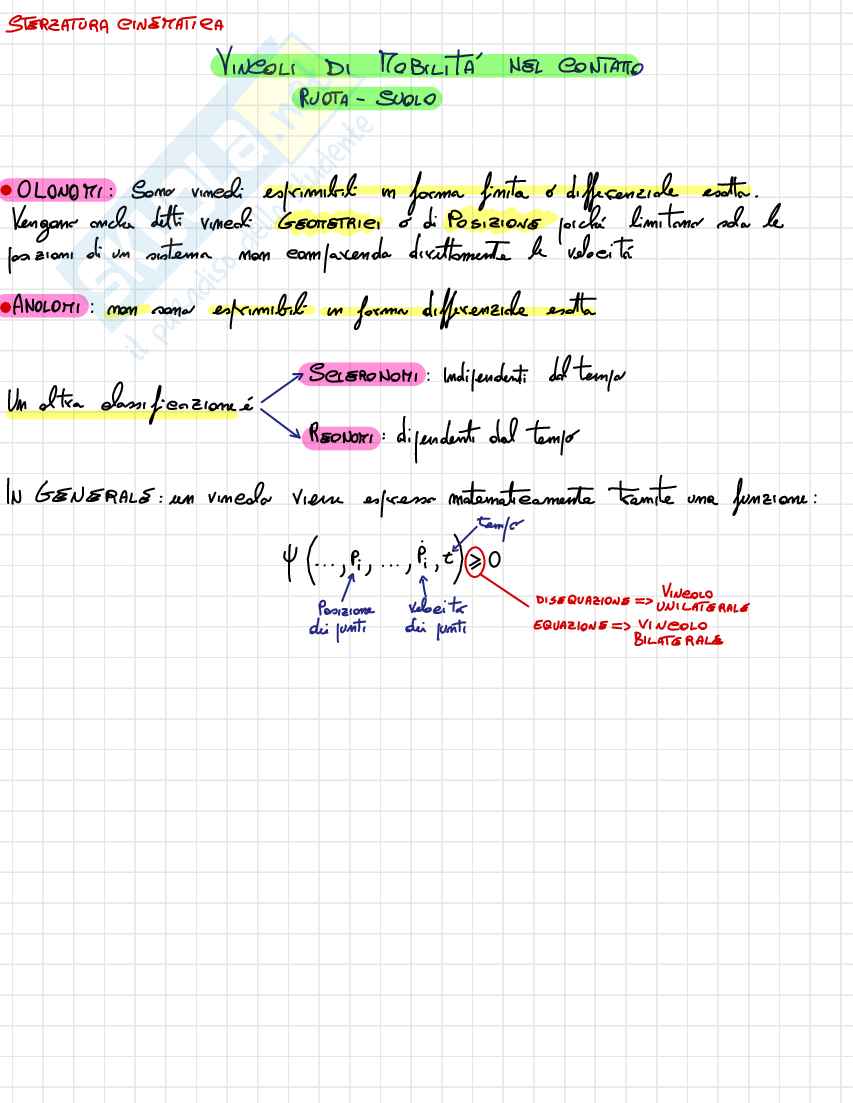 STERZATURA CINEMATICA
VINCOLI DI MOBILITÁ NEL CONTATTO
RUOTA - SUOLO
• OLONOMI: Sono vincoli esprimibili in forma finita o differenziale esatta.
Vengono anche detti vincoli GEOMETRICI o di POSIZIONE poiché limitano solo le
posizioni di un sistema non comparendo direttamente le velocitá
• ANOLOMI: non sono esprimibili in forma differenziale esatta
SCLERONOMI: Indipendenti dal tempo
Un altra classificazione é
REONOMI: dipendenti dal tempo
IN GENERALE: un vincolo viene espresso matematicamente tramite una funzione:
tempo
Ψ (..., Pi, ..., Ṗi, t) ≥ 0
DISEQUAZIONE => VINCOLO
UNILATERALE
Posizione
dei punti
Velocitá
dei punti
EQUAZIONE => VINCOLO
BILATERALE
SKUOLA.net
il paradiso dello studente